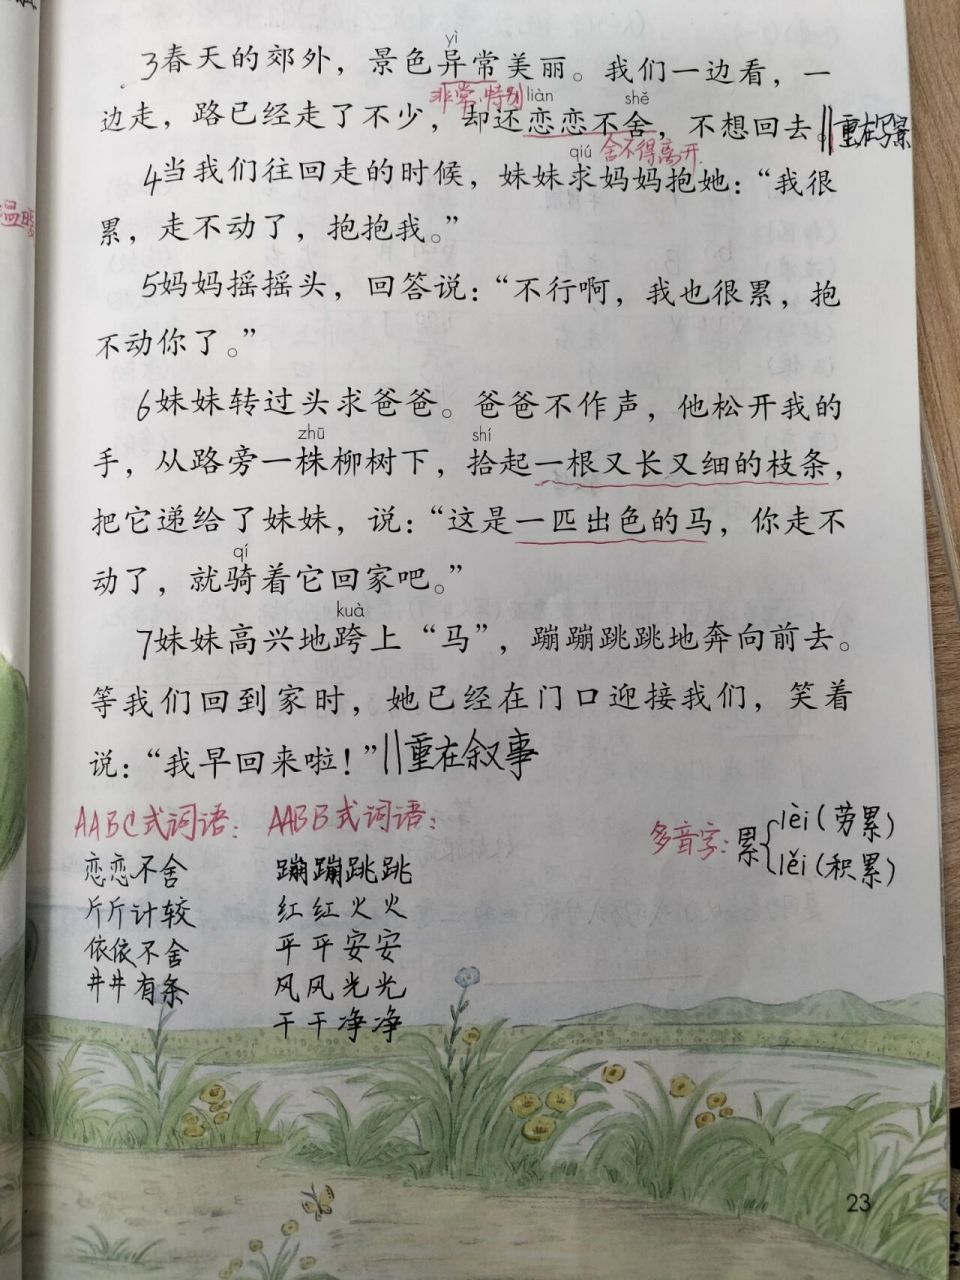 yì
3春天的郊外，景色异常美丽。我们一边看，一
非常、特别 liàn shě
边走，路已经走了不少，却还恋恋不舍，不想回去。‖重在写景
qiú 舍不得离开.
4当我们往回走的时候，妹妹求妈妈抱她：“我很
温暖
累，走不动了，抱抱我。”
5妈妈摇摇头，回答说：“不行啊，我也很累，抱
不动你了。”
6妹妹转过头求爸爸。爸爸不作声，他松开我的
zhū shí
手，从路旁一株柳树下，拾起一根又长又细的枝条，
把它递给了妹妹，说：“这是一匹出色的马，你走不
qí
动了，就骑着它回家吧。”
kuà
7妹妹高兴地跨上“马”，蹦蹦跳跳地奔向前去。
等我们回到家时，她已经在门口迎接我们，笑着
说：“我早回来啦！”‖重在叙事
AABC式词语： AABB式词语：
恋恋不舍 蹦蹦跳跳
斤斤计较 红红火火
依依不舍 平平安安
井井有条 风风光光
干干净净
多音字：累{lèi（劳累）
lěi（积累）
23